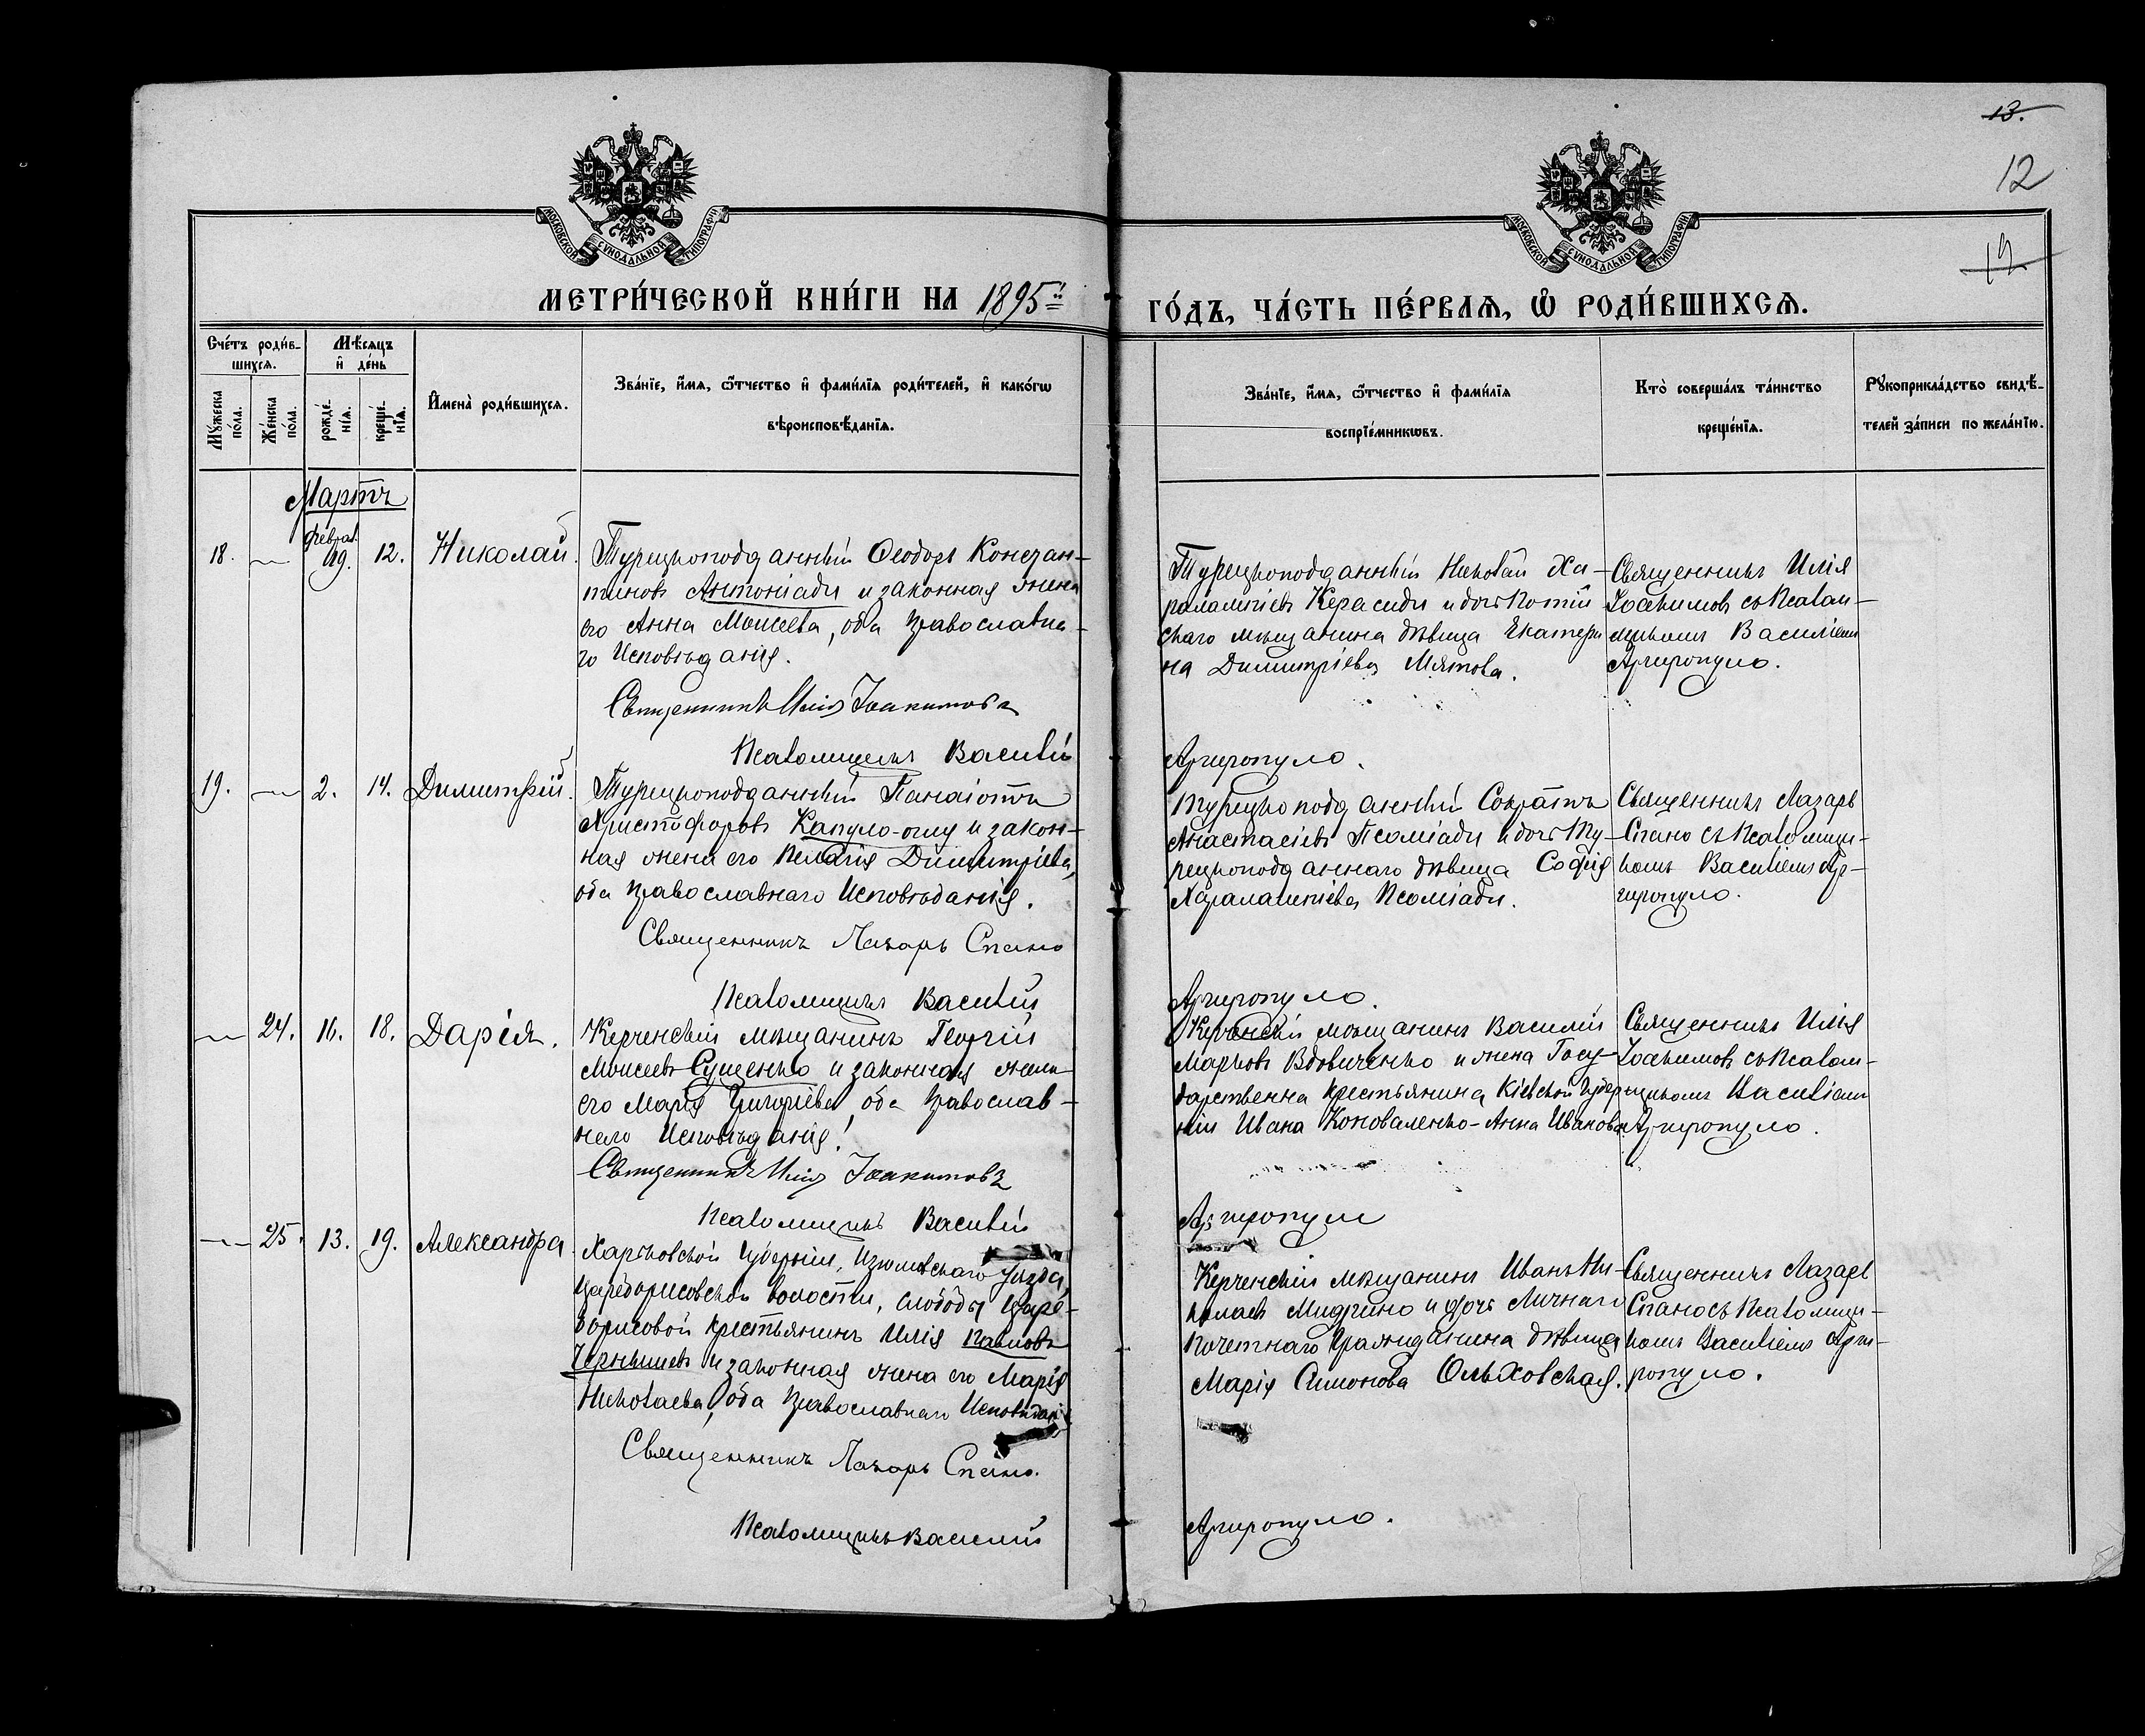 13.
12
12
МОСКОВСКОЙ СѴНОДАЛЬНОЙ ТИПОГРАФІИ
МОСКОВСКОЙ СѴНОДАЛЬНОЙ ТИПОГРАФІИ
МЕТРИ́ЧЕСКОЙ КНИ́ГИ НА 1895й
ГО́ДЪ, ЧА́СТЬ ПЕ́РВАѦ, Ѽ РОДИ́ВШИХСѦ.
Сче́тъ роди́в-
шихсѧ.
Мѣ́сѧцъ
и҆ де́нь
Мꙋ́жеска
по́ла.
Же́нска
по́ла.
рожде́-
нїѧ.
креще́-
нїѧ.
И҆мена̀ роди́вшихсѧ.
Зва́нїе, и҆́мѧ, ѻ҆́тчество и҆ фами́лїѧ роди́телей, и҆ како́гѡ
вѣроисповѣ́данїѧ.
Зва́нїе, и҆́мѧ, ѻ҆́тчество и҆ фами́лїѧ
воспрїе́мникѡвъ.
Кто̀ соверша́лъ та́инство
креще́нїѧ.
Рꙋкоприкла́дство свидѣ́-
телей за́писи по жела́нїю.
Мартъ
Феврал.
18. — 19. 12. Николай.
Турецкоподданный Ѳеодоръ Констан-
тиновъ Антоніади и законная жена
его Анна Моисеева, оба Православна-
го Исповѣданія.
Священникъ Илія Іоакимовъ
Псаломщикъ Василій
Турецкоподданный Николай Ха-
ралампіевъ Керасиди и дочь
скаго мѣщанина дѣвица Екатери
на Димитріева Мятова.
Аргиропуло.
Священникъ Илія
Іоакимовъ съ Псалом-
щикомъ Василіемъ
Аргиропуло.
19. — 2. 14. Димитрій.
Турецкоподданный Панаіотъ
Христофоровъ Капуло-оглу и закон-
ная жена его Пелагія Димитріева,
оба Православнаго Исповѣданія.
Священникъ Лазарь Спано
Псаломщикъ Василій
Турецкоподданный Сократъ
Анастасіевъ Псоміади и дочь Ту-
рецкоподданнаго дѣвица Софія
Харалампіева Псоміади.
Аргиропуло.
Священникъ Лазарь
Спано съ Псаломщи-
комъ Василіемъ Ар-
гиропуло.
— 24. 16. 18. Дарія.
Керченскій мѣщанинъ Георгій
Моисеевъ Сущенко и законная жена
его Марія Григоріева, оба Православ-
наго Исповѣданія.
Священникъ Илія Іоакимовъ
Псаломщикъ Василій
Керченскій мѣщанинъ Василій
Марковъ Вдовиченко и жена Госу-
дарственна крестьянина Кіевской Губер
ніи Ивана Коноваленко-Анна Иванова.
Аргиропуло
Священникъ Илія
Іоакимовъ съ Псалом-
щикомъ Василіемъ
Аргиропуло.
— 25. 13. 19. Александра.
Харьковской Губерніи, Изюмскаго Уѣзда,
Царeборисовской волости, слободы Царе-
борисовой крестьянинъ Илія Павловъ
Чернышевъ и законная жена его Марія
Николаева, оба Православнаго Исповѣданія
Священникъ Лазарь Спано.
Псаломщикъ Василій
Керченскій мѣщанинъ Иванъ Ни-
колаев и дочь Личнаго
Почетнаго Гражданина дѣвица
Марія Симонова Ольховская.
Аргиропуло.
Священникъ Лазарь
Спано съ Псаломщи-
комъ Василіемъ Арги-
ропуло.